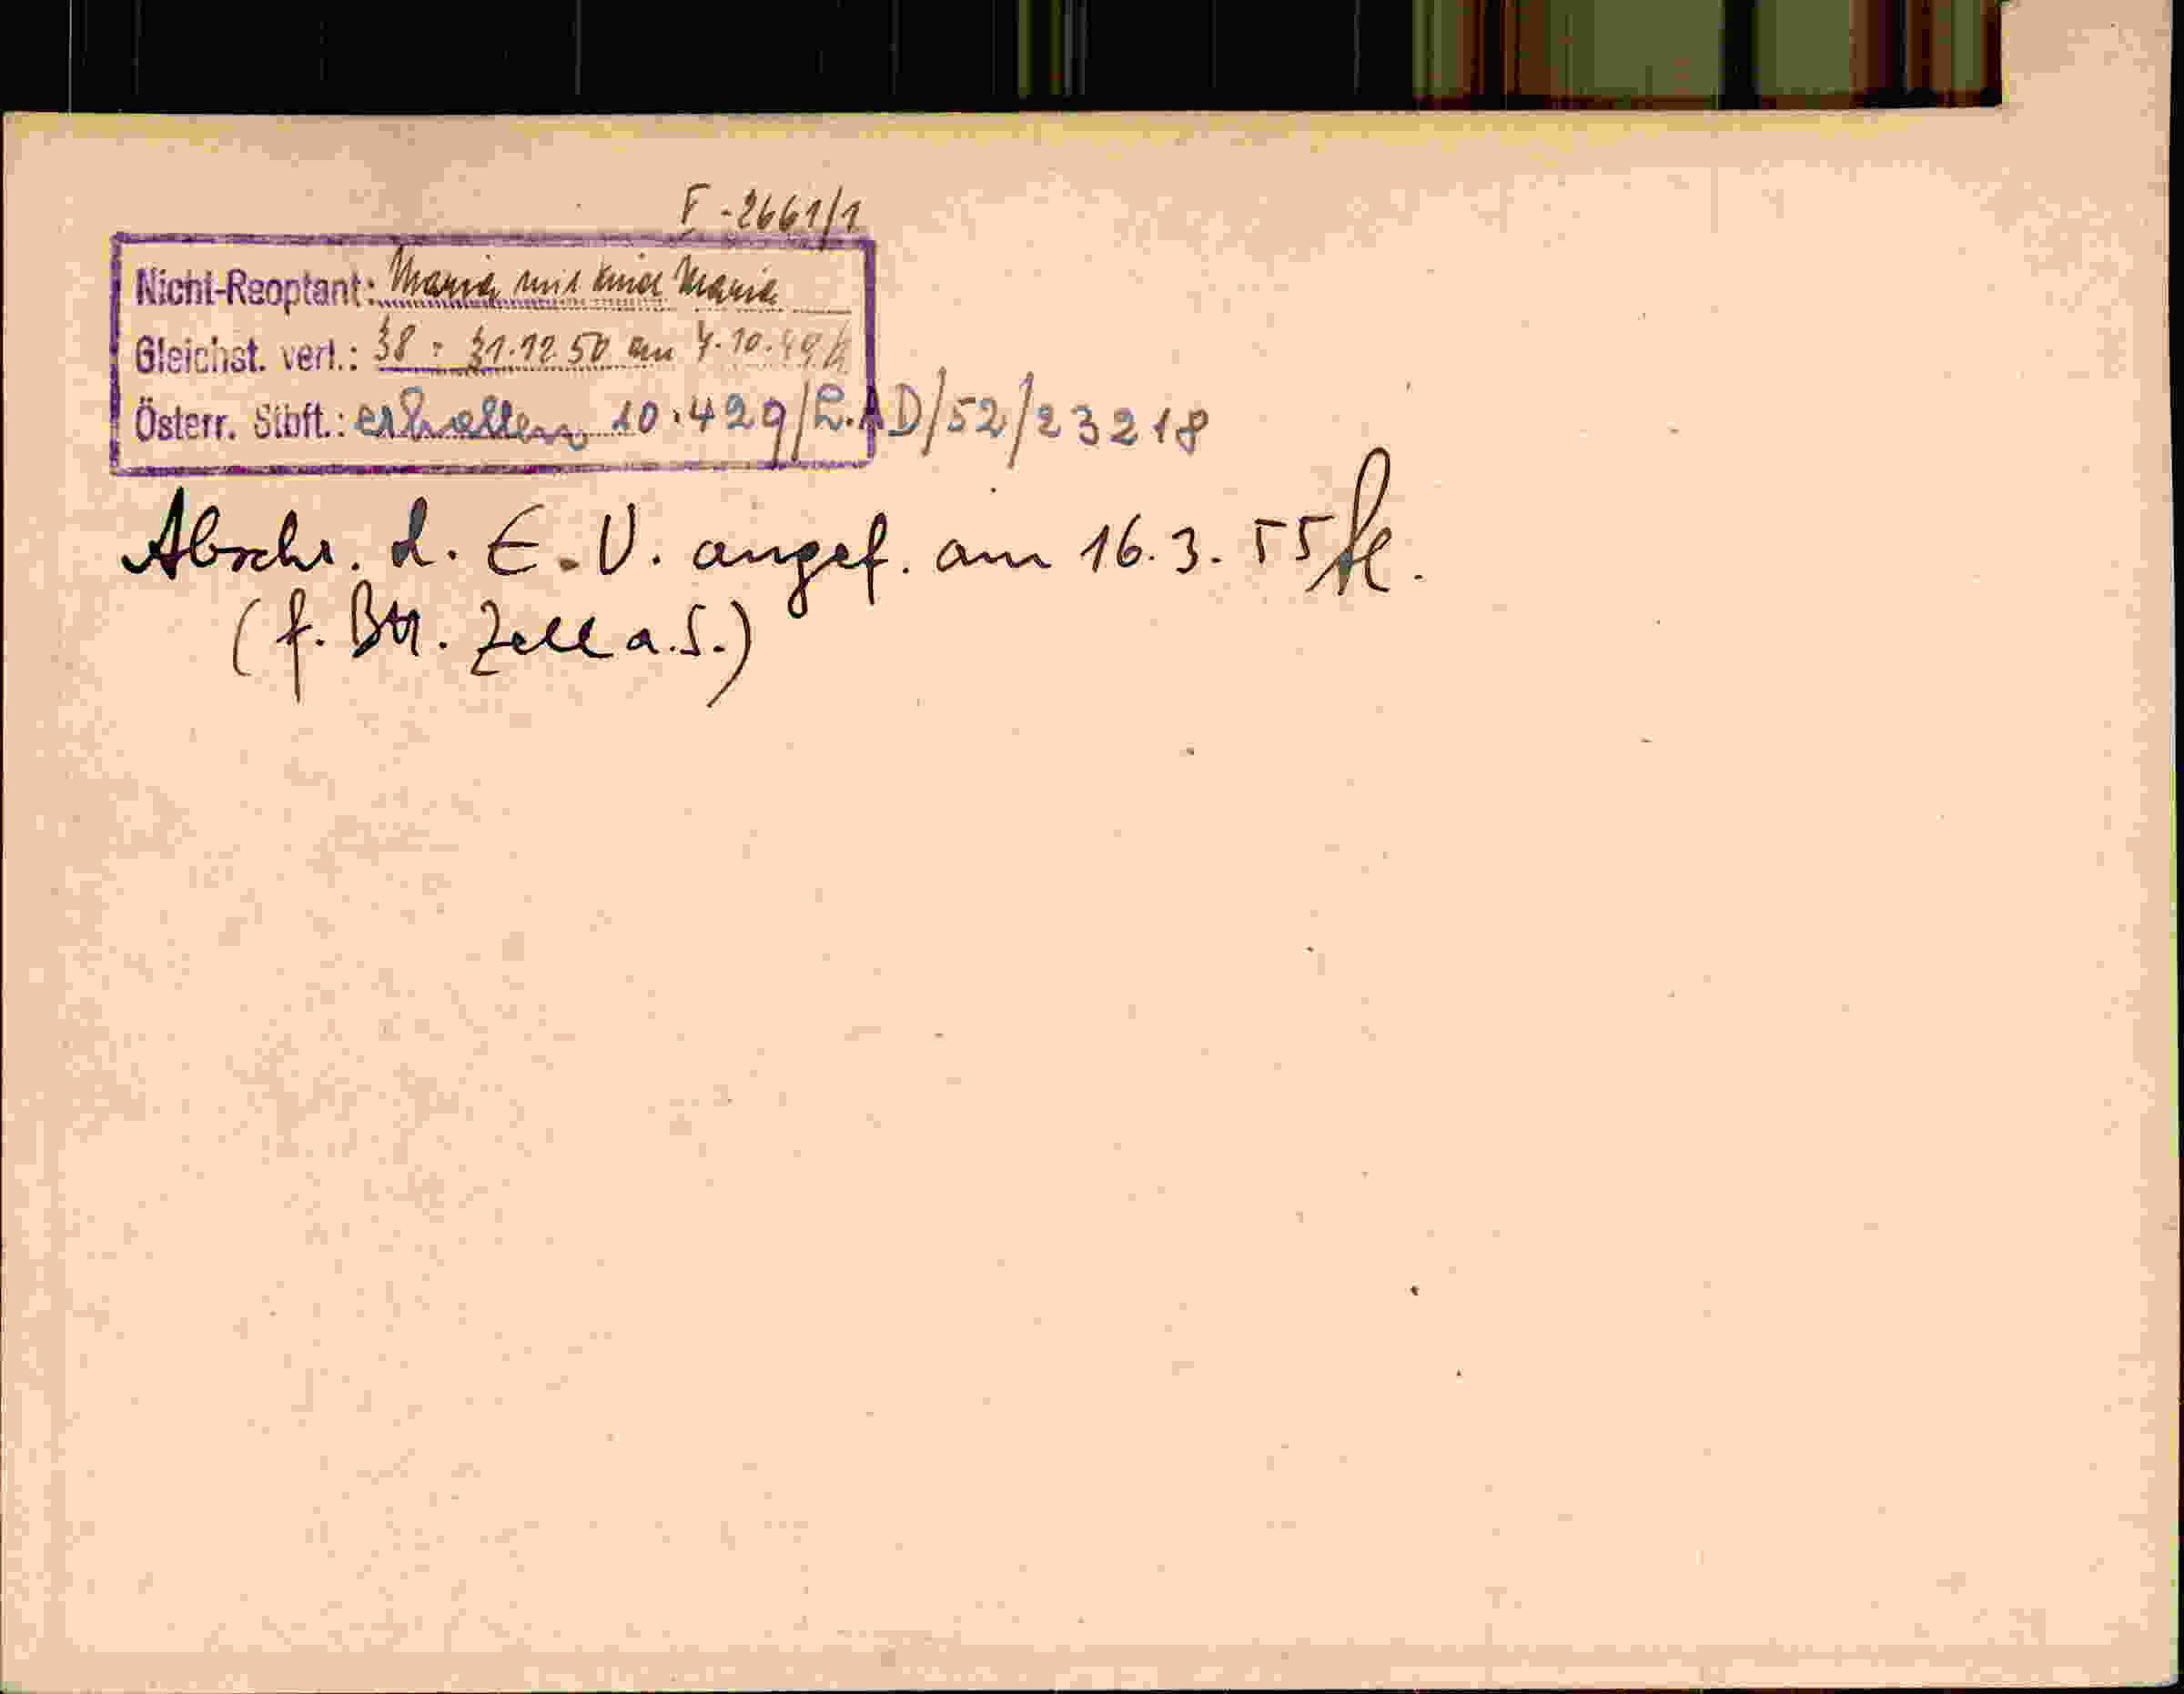 F-2661/1
Nicht-Reoptant: Maria mit Kind Maria
Gleichst. verl.: 38 : 31.12.50 am 4.10.49
Österr. Stbft.: erhalten 10.429/L.AD/52/23218
Abschr. d. E.V. angef. am 16.3.55
(f. BH. Zell a.S.)